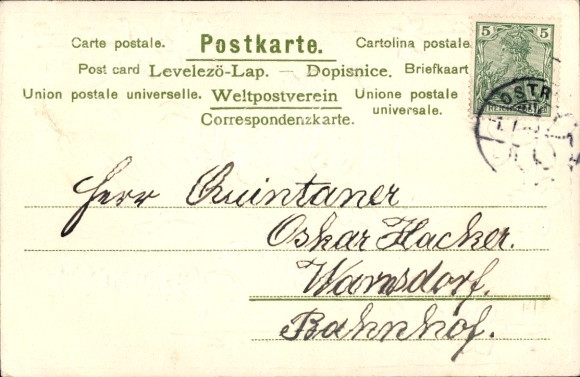 Carte postale. Postkarte. Cartolina postale
Post card Levelezö-Lap. — Dopisnice. Briefkaart
Union postale universelle. Weltpostverein Unione postale
universale.
Correspondenzkarte.
5 5
OSTR
Herr Quintaner
Oskar Hacker.
Warnsdorf.
Bahnhof.